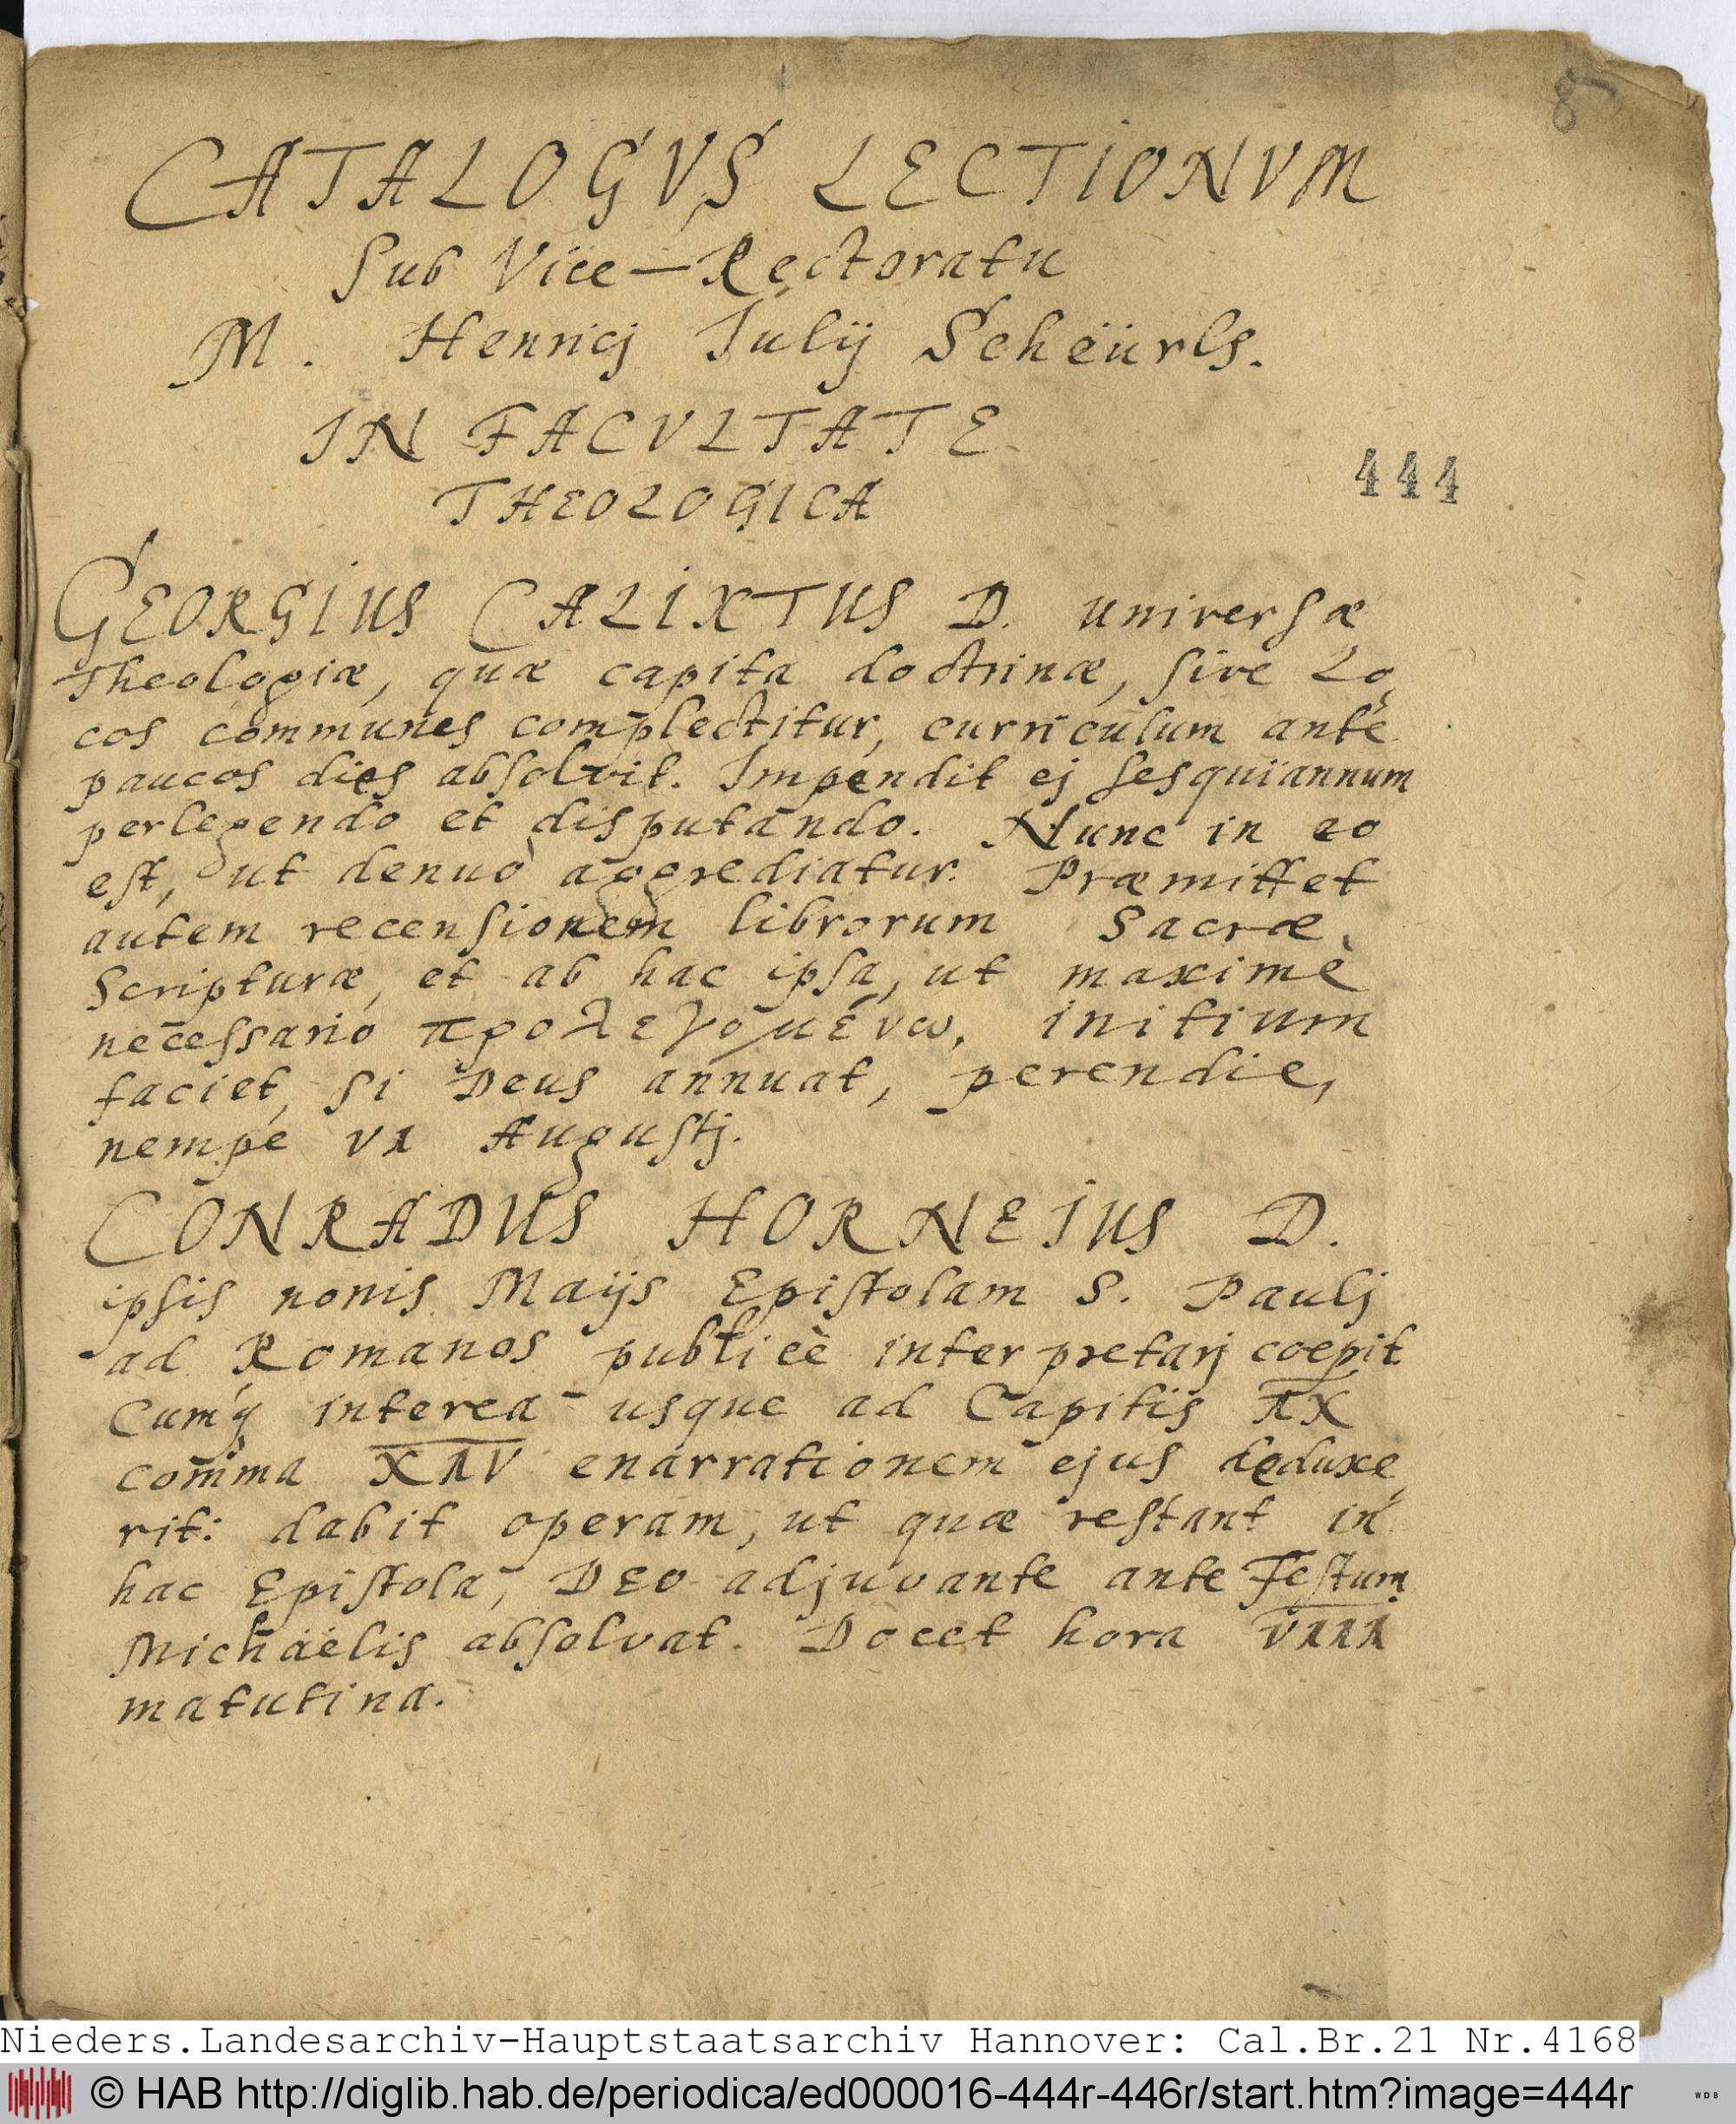 8
CATALOGVS LECTIONVM
Sub Vice-Rectoratu
M. Henricj Iulij Scheürls.
IN FACVLTATE
444
THEOLOGICA
GEORGIUS CALIXTUS D. universæ
Theologiæ, quæ capita doctrinæ, sive Lo,
cos communes complectitur, curriculum ante
paucos dies absolvit. Impendit ej sesquiannum
perlegendo et disputando. Nunc in eo
est, ut denuò aggrediatur. Præmittet
autem recensionem librorum Sacræ
Scripturæ, et ab hac ipsa, ut maximè
necessario προλεγομένω, initium
faciet, si Deus annuat, perendie,
nempe VI Augustj.
CONRADUS HORNEIUS D.
ipsis nonis Maijs Epistolam S. Paulj
ad Romanos publicè interpretarj coepit
Cumq́ interea usque ad Capitis IX
comma XIV enarrationem ejus deduxe,
rit: dabit operam, ut quæ restant in
hac Epistola, DEO adjuvante ante Festum
Michaëlis absolvat. Docet hora VIII
matutina.
Nieders.Landesarchiv-Hauptstaatsarchiv Hannover: Cal.Br.21 Nr.4168
© HAB http://diglib.hab.de/periodica/ed000016-444r-446r/start.htm?image=444r
WDB